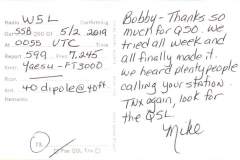 Radio W5L Confirming
SSB QSO Of 5/2 2019
At 0055 UTC Time
Report 599 Freq 7.245
Xmtr. Yaesu-FT3000
Rcvr.
Ant. 40 dipole@40ft.
Remarks
Bobby- Thanks so
much for QSO. we
tried all week and
all finally made it.
we heard plenty people
calling your station.
TNX again, look for
the QSL.
Mike
QSL